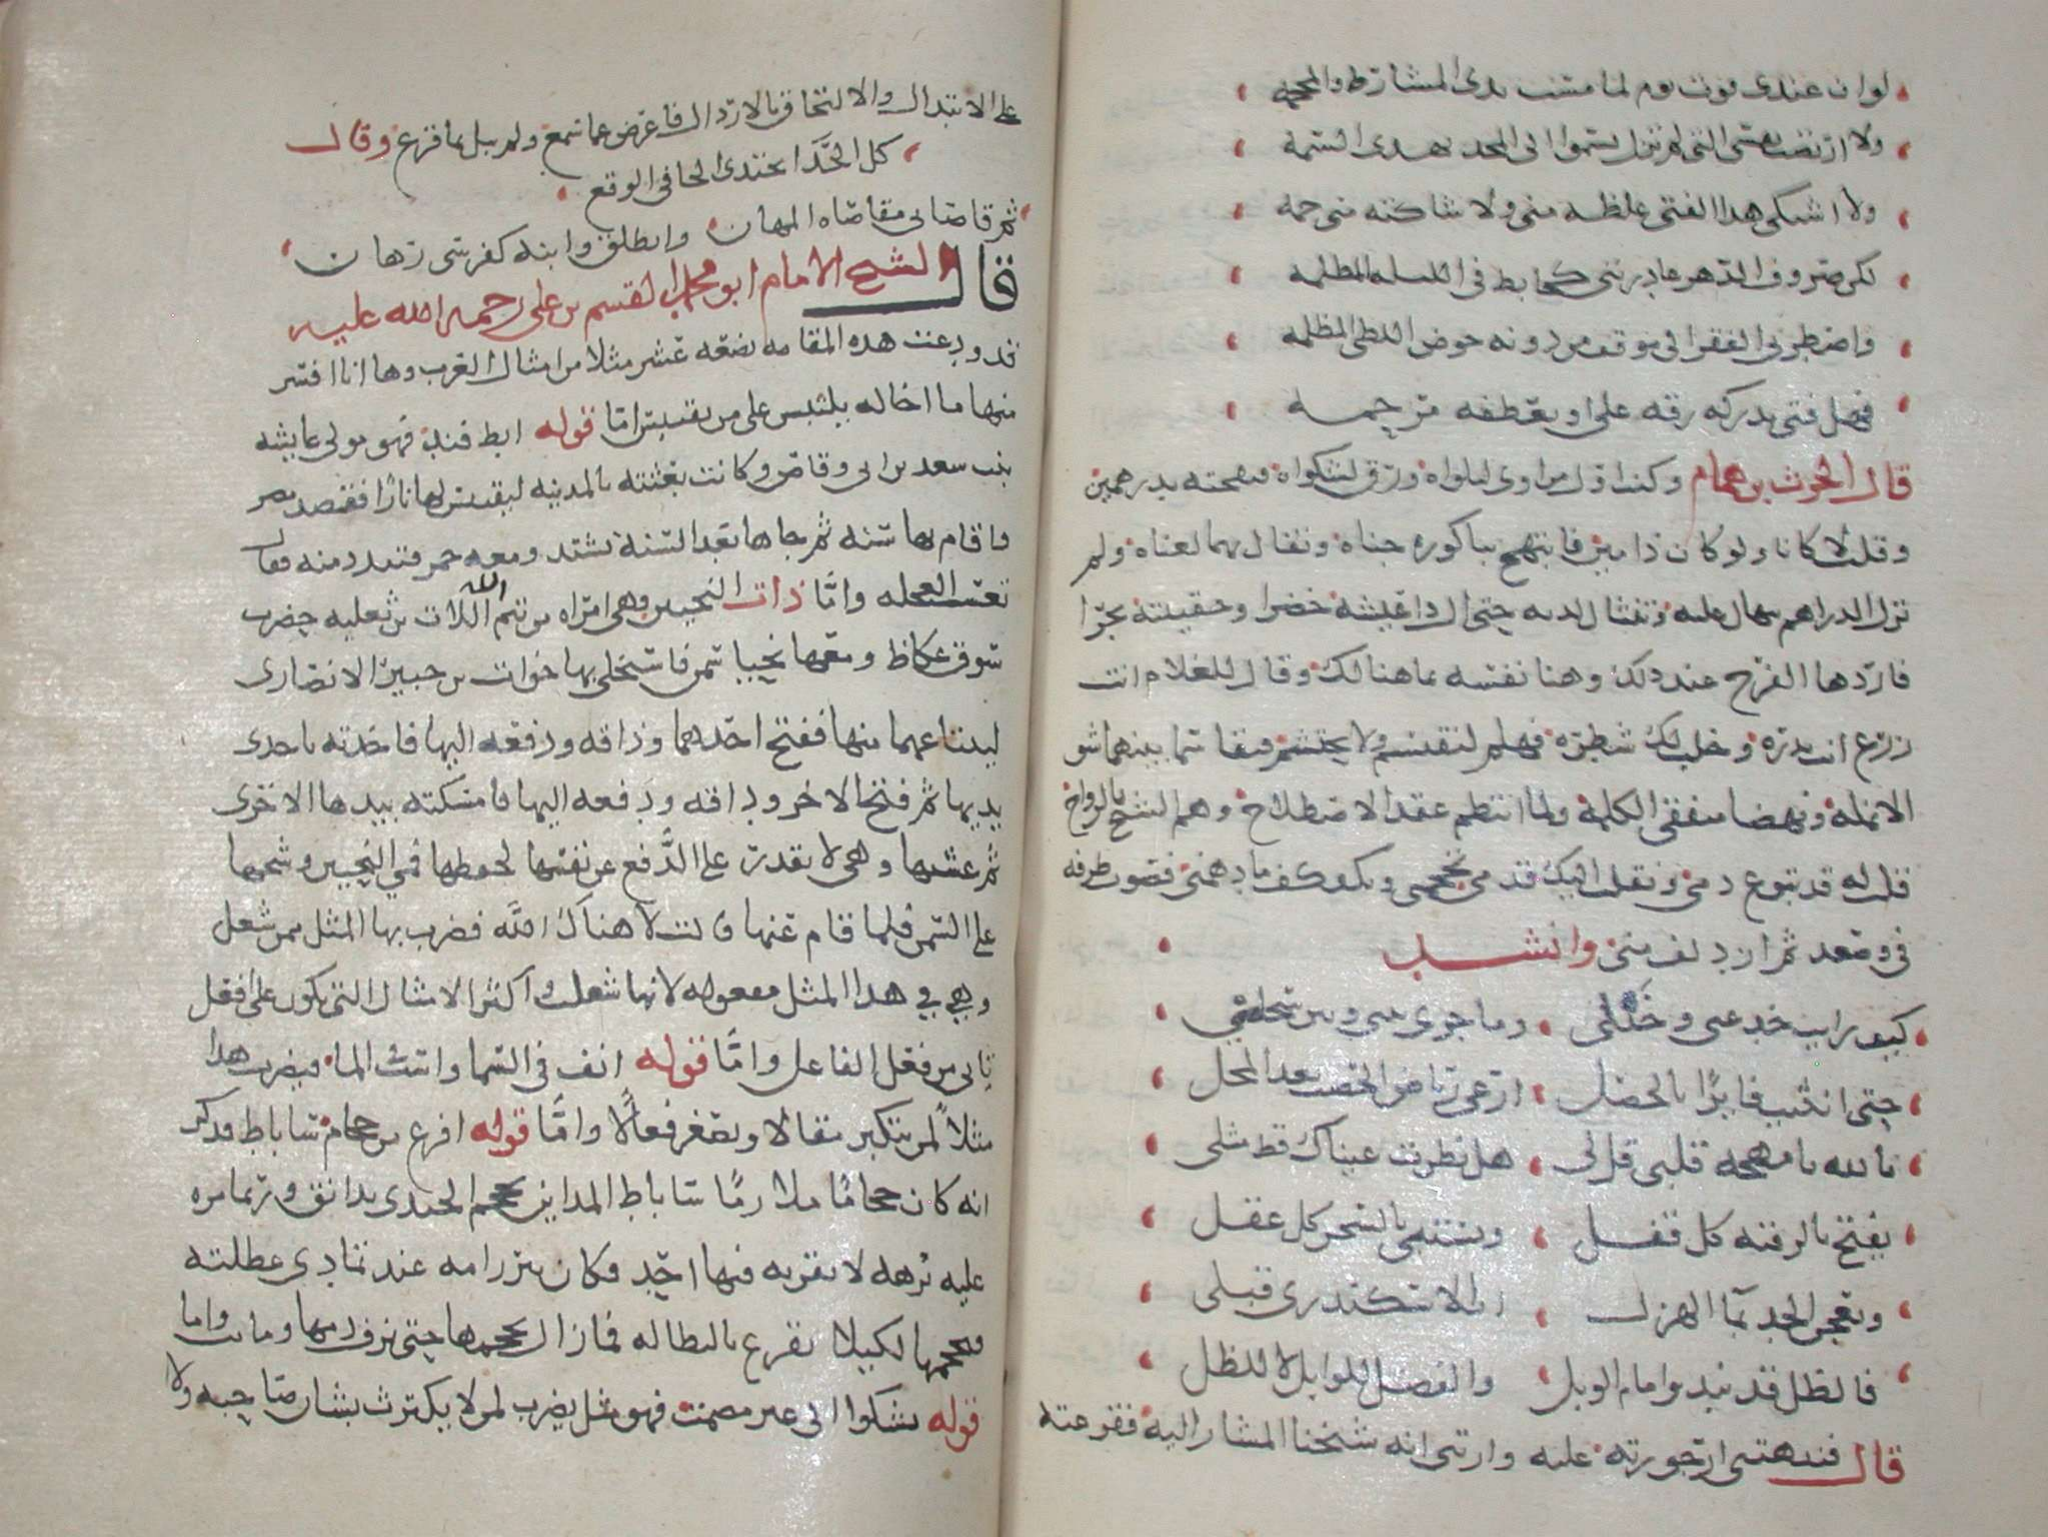 لو ان عندى قوت يوم لما مست يدى المشراط والمحجمه
ولا ارتضت نفسى التى لم تزل تسموا الى المجد بهدى السمه
ولا اشتكى هدا الفتى غلظه منى ولا شاكته منى حمه
لكن صروف الدهر غادرننى كخابط فى الليله المظلمه
واضطرنى الفقر الى موقف من دونه خوض اللظى المضرمه
فهل فتى تدركه رقه على او تعطفه مرحمه
قال الحرث بن همام وكنت اول من اوى لبلواه ورق لشكواه فنفحته بدرهمين
وقلت لا كانا ولو كان ذا مين فابتهج بباكورة جناه وتفال بهما لغناه ولم
تزل الدراهم تنهال عليه وتنثال لديه حتى ال ذا عيشة خضرا وحقيبة بجرا
فازدهاه الفرح عند ذلك وهنا نفسه بما هنالك وقال للغلام
ريع انت بدره وحلب لك شطره فهلم لنقتسم ولا نحتشم فتقاسماه بينهما شق
الابلمه ونهضا متفقى الكلمه ولما انتظم عقد الاصطلاح وهم الشيخ بالرواح
قلت له قد تبوغ دمى ونقلت اليك قدمى فهل لك ان تحجمنى وتكف ما دهمنى فصوب طرفه
فى وصعد ثم ازدلف منى وانشد
كيف رايت خدعتى وختلى وما جرى بينى وبين سخلى
حتى انثنيت فايزا بالخصل ارعى رياض الخصب بعد المحل
بالله يا مهجه قلبى قل لى هل نظرت عيناك قط مثلى
يفتح بالرقيه كل قفل ويستبى بالسحر كل عقل
ويعجن الجد بما الهزل ان الاسكندرى قبلى
فالطل قد يبدو امام الوبل والفضل للوابل لا للطل
قال فنبهتنى ارجوزته عليه وارتنى انه شيخنا المشار اليه فقرعته
على الابتدال والالتحاق بالارذال فاعرض عما سمع ولم يبل بما قرع وقال
كل الحذا يحتدى الحافى الوقع
ثم قاصانى مقاصاه المهان وانطلق وابنه كفرسى رهان
قال الشيخ الامام ابو محمد القسم بن على رحمه الله عليه
قد ودعت هده المقامه بضعه عشر مثلا من امثال العرب وها انا افسر
منها ما اخاله يلتبس على من يقتبس اما قوله ابطا فند فهو مولى عايشه
بنت سعد بن ابى وقاص وكانت بعثته بالمدينه ليقتبس لها نارا فقصد مصر
واقام بها سنه ثم جاها بعد السنة يشتد ومعه جمر فتبدد منه فقال
تعست العجله واما ذات النحيين وهى امراه من تيم اللات الله بن ثعلبه حضرت
سوق عكاظ ومعها نحيا سمن فاستخلى بها خوات بن جبير الانصارى
ليبتاعهما منها ففتح احدهما وذاقه ودفعه اليها فاخدته باحدى
يديها ثم فتح الاخر وذاقه ودفعه اليها فامسكته بيدها الاخرى
ثم غشيها وهى لا تقدر على الدفع عن نفسها لحفظها فمى النحيين وشحها
على السمن فلما قام عنها قالت لا هناك الله فضرب بها المثل فمن شغل
وهى فى هدا المثل مفعوله لانها شغلت واكثر الامثال التى تكون على افعل
تاتى من فعل الفاعل واما قوله انف فى السما واست الما فيضرب هدا
مثلا لمن يتكبر مقالا ويصغر فعالا واما قوله افرغ من حجام ساباط فدكر
انه كان حجاما ملازما ساباط المداين يحجم الجندى بدانق وربما مرت
عليه برهه لا يقربه فيها احد فكان يبرز امه عند تمادى عطلته
فيحجمها لكيلا يقرع بالبطاله فما زال يحجمها حتى نزف دمها وماتت واما
قوله يشكوا الى غير مصمت فهو مثل يضرب لمن لا يكترث بشان صاحبه ولا